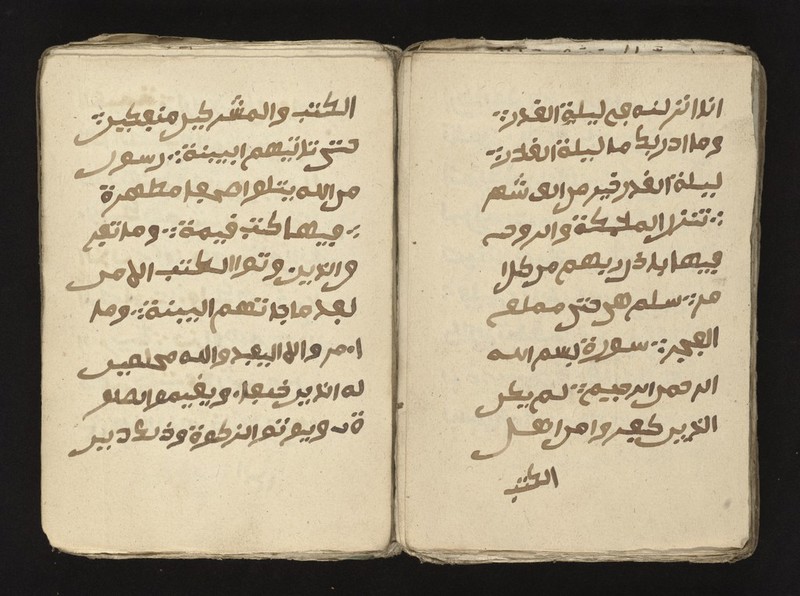 انا انزلنه في ليلة القدر
وما ادريك ما ليلة القدر
ليلة القدر خير من الف شهر
تتنزل الملئكة والروح
فيها باذن ربهم من كل ا
مر سلم هي حتى مطلع
الفجر سورة بسم الله
الرحمن الرحيم لم يكن
الذين كفروا من اهل
الكتب
الكتب والمشركين منفكين
حتى تاتيهم البينة رسول
من الله يتلوا صحفا مطهرة
فيها كتب قيمة وما تفر
والذين وتوا الكتب الا من
بعد ما جاتهم البينة وما
امروا الا ليعبدوالله مخلصين
له الذين حنفا ويقيموا الصلو
ة ويوتوا الزكوة وذلك دين